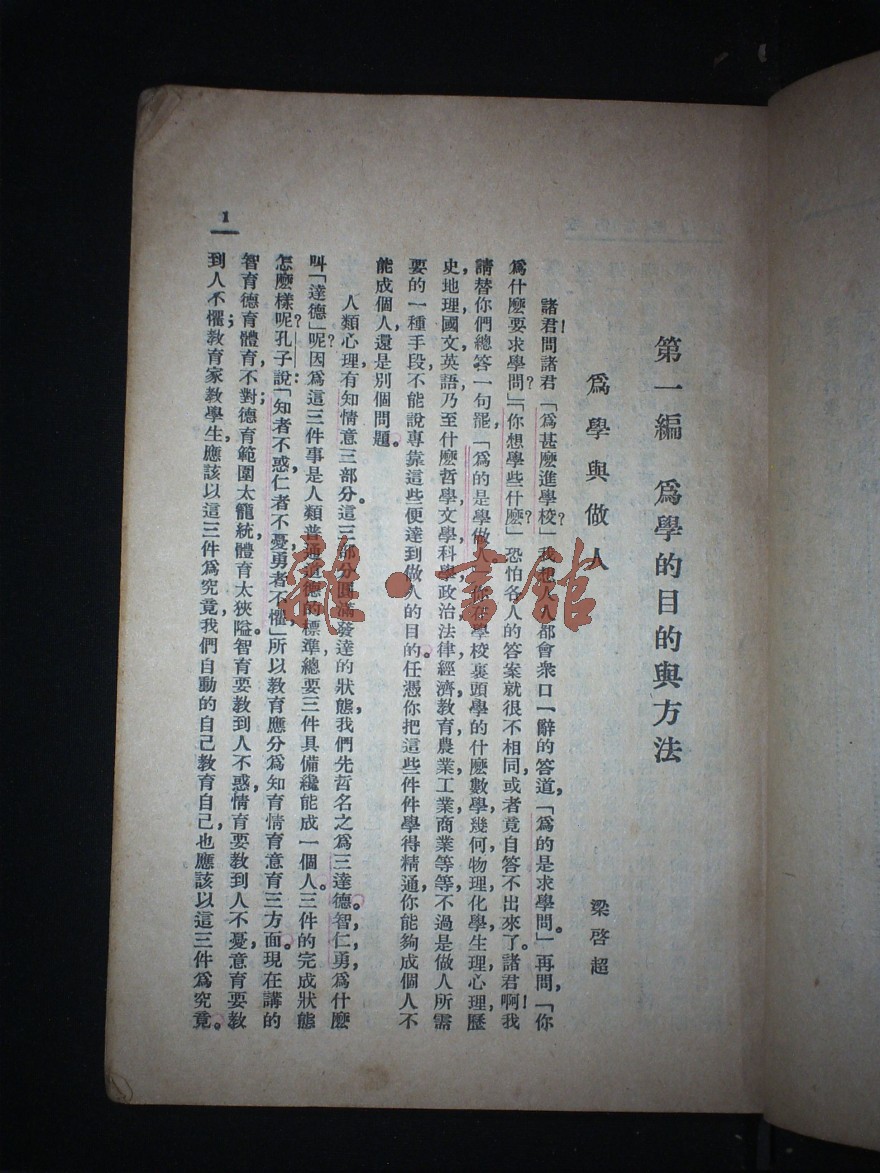 第一編　爲學的目的與方法
爲學與做人
梁啓超
諸君！問諸君「爲甚麽進學校？」我想人人都會衆口一辭的答道，「爲的是求學問。」再問，「你
爲什麽要求學問？」「你想學些什麽？」恐怕各人的答案就很不相同，或者竟自答不出來了。諸君啊！我
請替你們總答一句罷，「爲的是學做人」你在學校裏頭學的什麽數學，幾何，物理，化學，生理，心理，歷
史，地理，國文，英語，乃至什麽哲學，文學，科學，政治，法律，經濟，教育，農業，工業，商業等等，不過是做人所需
要的一種手段，不能說專靠這些便達到做人的目的。任憑你把這些件件學得精通，你能夠成個人不
能成個人，還是別個問題。
人類心理，有知情意三部分。這三部分圓滿發達的狀態，我們先哲名之爲三達德。智，仁，勇，爲什麽
叫「達德」呢？因爲這三件事是人類普通道德的標準，總要三件具備，纔能成一個人。三件的完成狀態
怎麽樣呢？孔子說：「知者不惑，仁者不憂，勇者不懼」所以教育應分爲知育情育意育三方面。現在講的
智育德育體育，不對；德育範圍太籠統，體育太狹隘。智育要教到人不惑，情育要教到人不憂，意育要教
到人不懼；教育家教學生，應該以這三件爲究竟，我們自動的自己教育自己，也應該以這三件爲究竟。
1
雜·書館